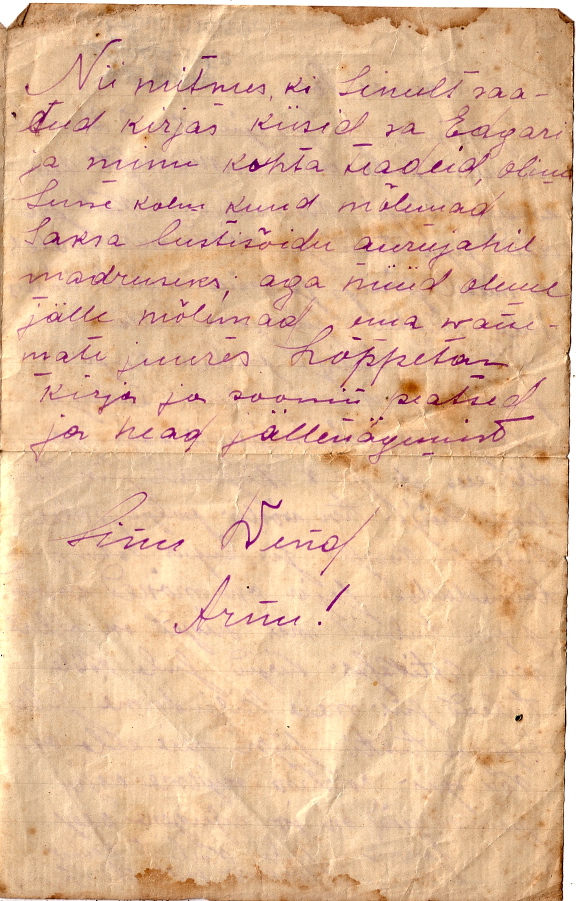 Nii mitmes, ki Sinult saa-
tud kirjas küsid sa Edgari
ja minu kohta teadeid, olime
Siin kolm kuud mõlemad
Saksa lustisõidu aurujahil
madruseks, aga nüüd oleme
jälle mõlemad oma wane-
mate juures Lõppetan
kirja ja soovin seatsed
ja head jällenägemist
Sinu Wend
Arnu!